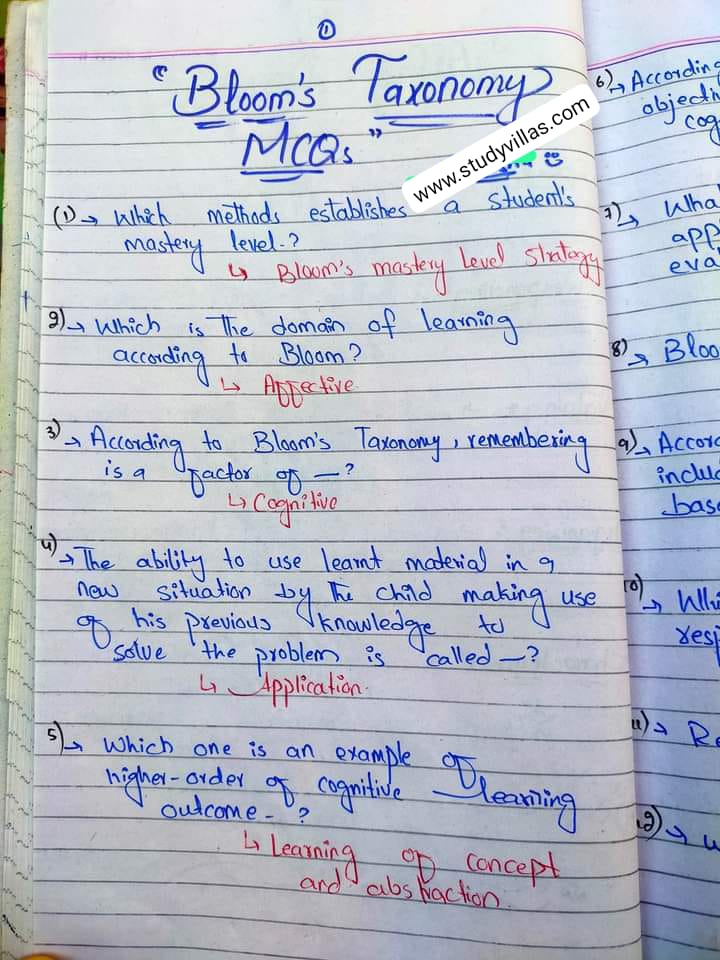 ①
"Bloom's Taxonomy
MCQs"
www.studyvillas.com
(1)→ Which methods establishes a student's
mastery level-?
↳ Bloom's mastery level strategy
2)→ Which is the domain of learning
according to Bloom?
↳ Affective
3)→ According to Bloom's Taxonomy, remembering
is a factor of —?
↳ Cognitive
4)→ The ability to use learnt material in a
new situation by the child making use
of his previous knowledge to
solve the problem is called —?
↳ Application.
5)→ Which one is an example of
higher-order of cognitive learning
outcome-?
↳ Learning of concept
and abstraction.
6)→ According
objecti
cog
7)→ Wha
app
eva
8)→ Bloo
9)→ Accor
includ
bas
→ Whi
resp
11)→ Re